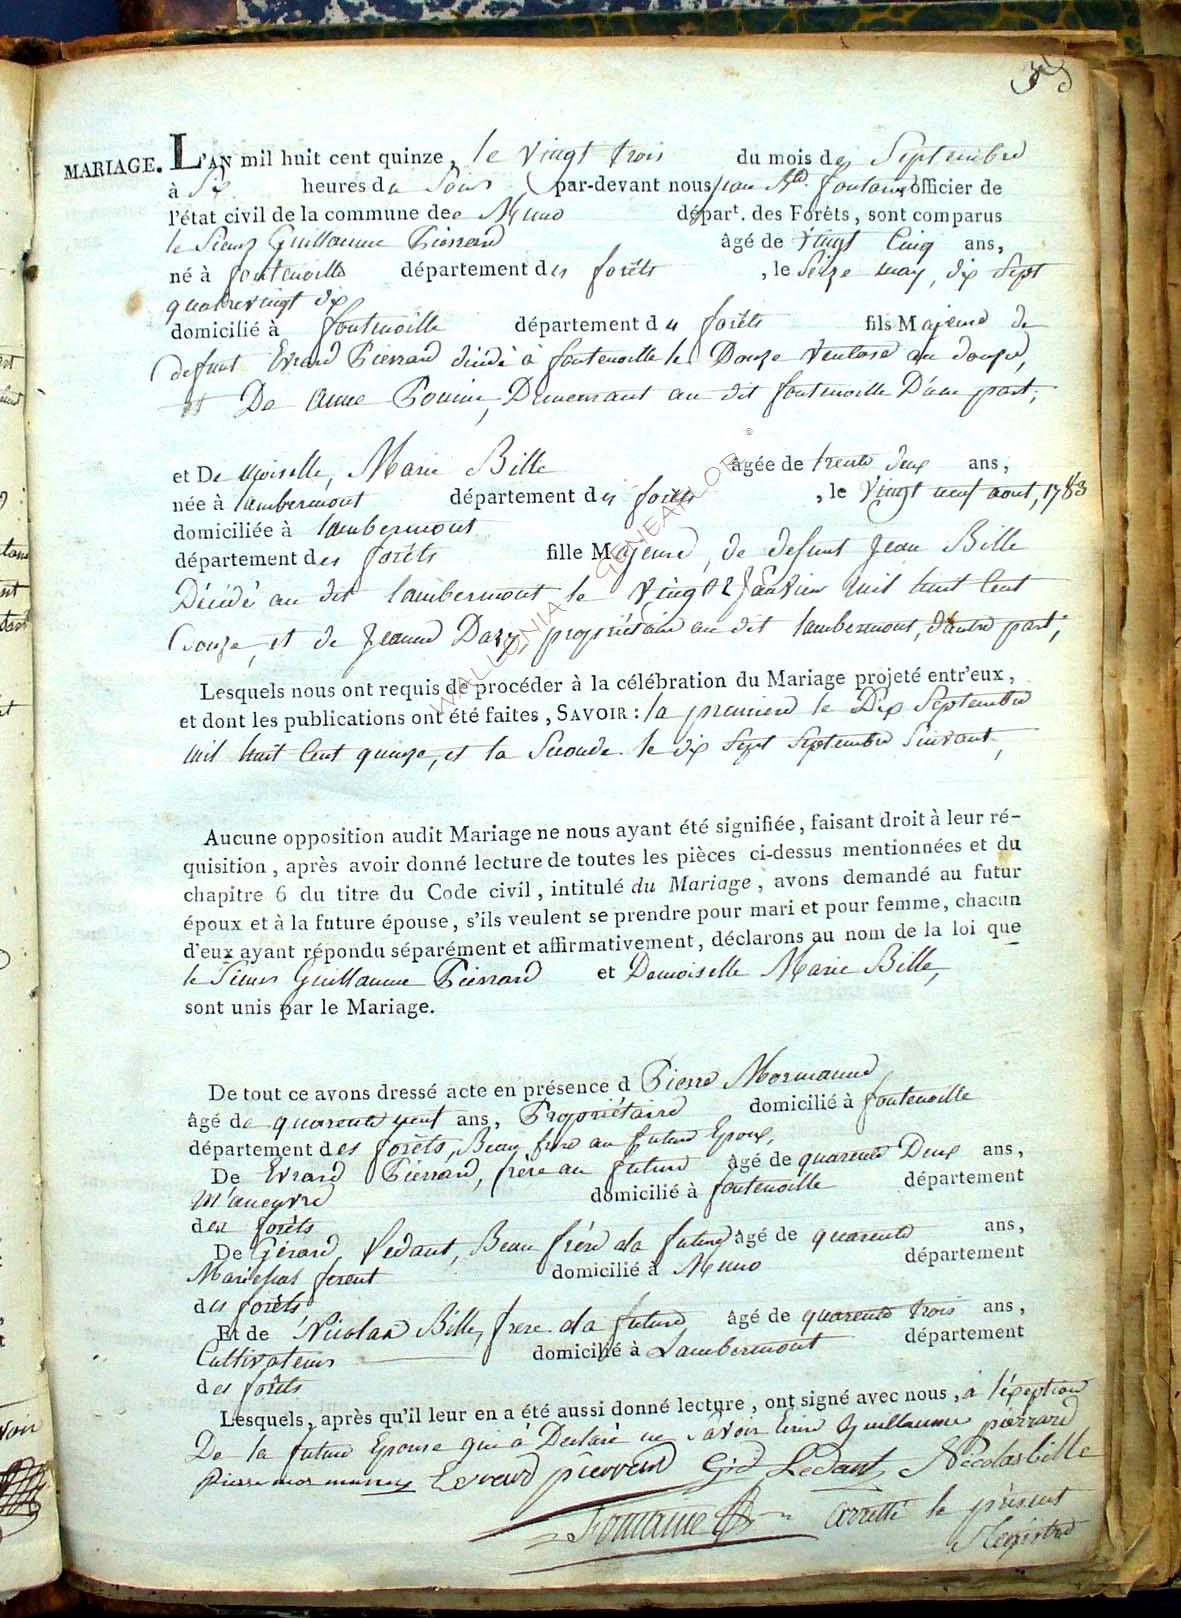 39
MARIAGE. L'AN mil huit cent quinze, le vingt trois du mois de Septembre
à Six heures du Soir par-devant nous jean Bte. fontaine, officier de
l'état civil de la commune de Muno départ. des Forêts, sont comparus
le Sieur Guillaume Pierrard âgé de vingt Cinq ans,
né à fontenoille département des forêts, le Seize may, dix Sept
quatrevingt dix
domicilié à fontenoille département du forêts fils Majeure de
defunt Evrard Pierrard décédé à fontenoille le Douze Ventose an douze,
et De anne Demeurant au dit fontenoille D'une part;
et Demoiselle, Marie Bille âgée de trente deux ans,
née à lambermont département des forêts, le vingt neuf aout, 1783
domiciliée à lambermont
département des forêts fille Majeure, de defunt Jean Bille
Décédé au dit lambermont le vingt 2 Janvier mil huit Cent
Douze, et de Jeanne Dazy, propriétaire au dit lambermont, d'autre part;
Lesquels nous ont requis de procéder à la célébration du Mariage projeté entr'eux,
et dont les publications ont été faites, SAVOIR: la premiere le Dix Septembre
mil huit Cent quinze, et la Seconde le dix Sept Septembre Suivant,
Aucune opposition audit Mariage ne nous ayant été signifiée, faisant droit à leur ré-
quisition, après avoir donné lecture de toutes les pièces ci-dessus mentionnées et du
chapitre 6 du titre du Code civil, intitulé du Mariage, avons demandé au futur
époux et à la future épouse, s'ils veulent se prendre pour mari et pour femme, chacun
d'eux ayant répondu séparément et affirmativement, déclarons au nom de la loi que
le Sieur Guillaume Pierrard et Demoiselle Marie Bille,
sont unis par le Mariage.
De tout ce avons dressé acte en présence d Pierre Mormanne
âgé de quarente neuf ans, Propriétaire domicilié à fontenoille
département des forêts, Beau frere au futur Epoux,
De Evrard Pierrard, frère au futur âgé de quarente Deux ans,
Maneuvre domicilié à fontenoille département
des forêts
De Gérard Ledant, Beau frère à la future âgé de quarente ans,
Marichas ferent domicilié à Muno département
des forêts
Et de Nicolas Bille, frere à la future âgé de quarente trois ans,
Cultivateur domicilié à Lambermont département
des forêts
Lesquels, après qu'il leur en a été aussi donné lecture, ont signé avec nous, à l'éxeption
De la future Epouse qui à Declaré ne Savoir Ecrire Guillaume pierrard
pierre mormanne Evrard pierrard Grd Ledant Nicolas bille
Fontaine Arretté le présent
Registre
WALLONIA GENEALOR ©